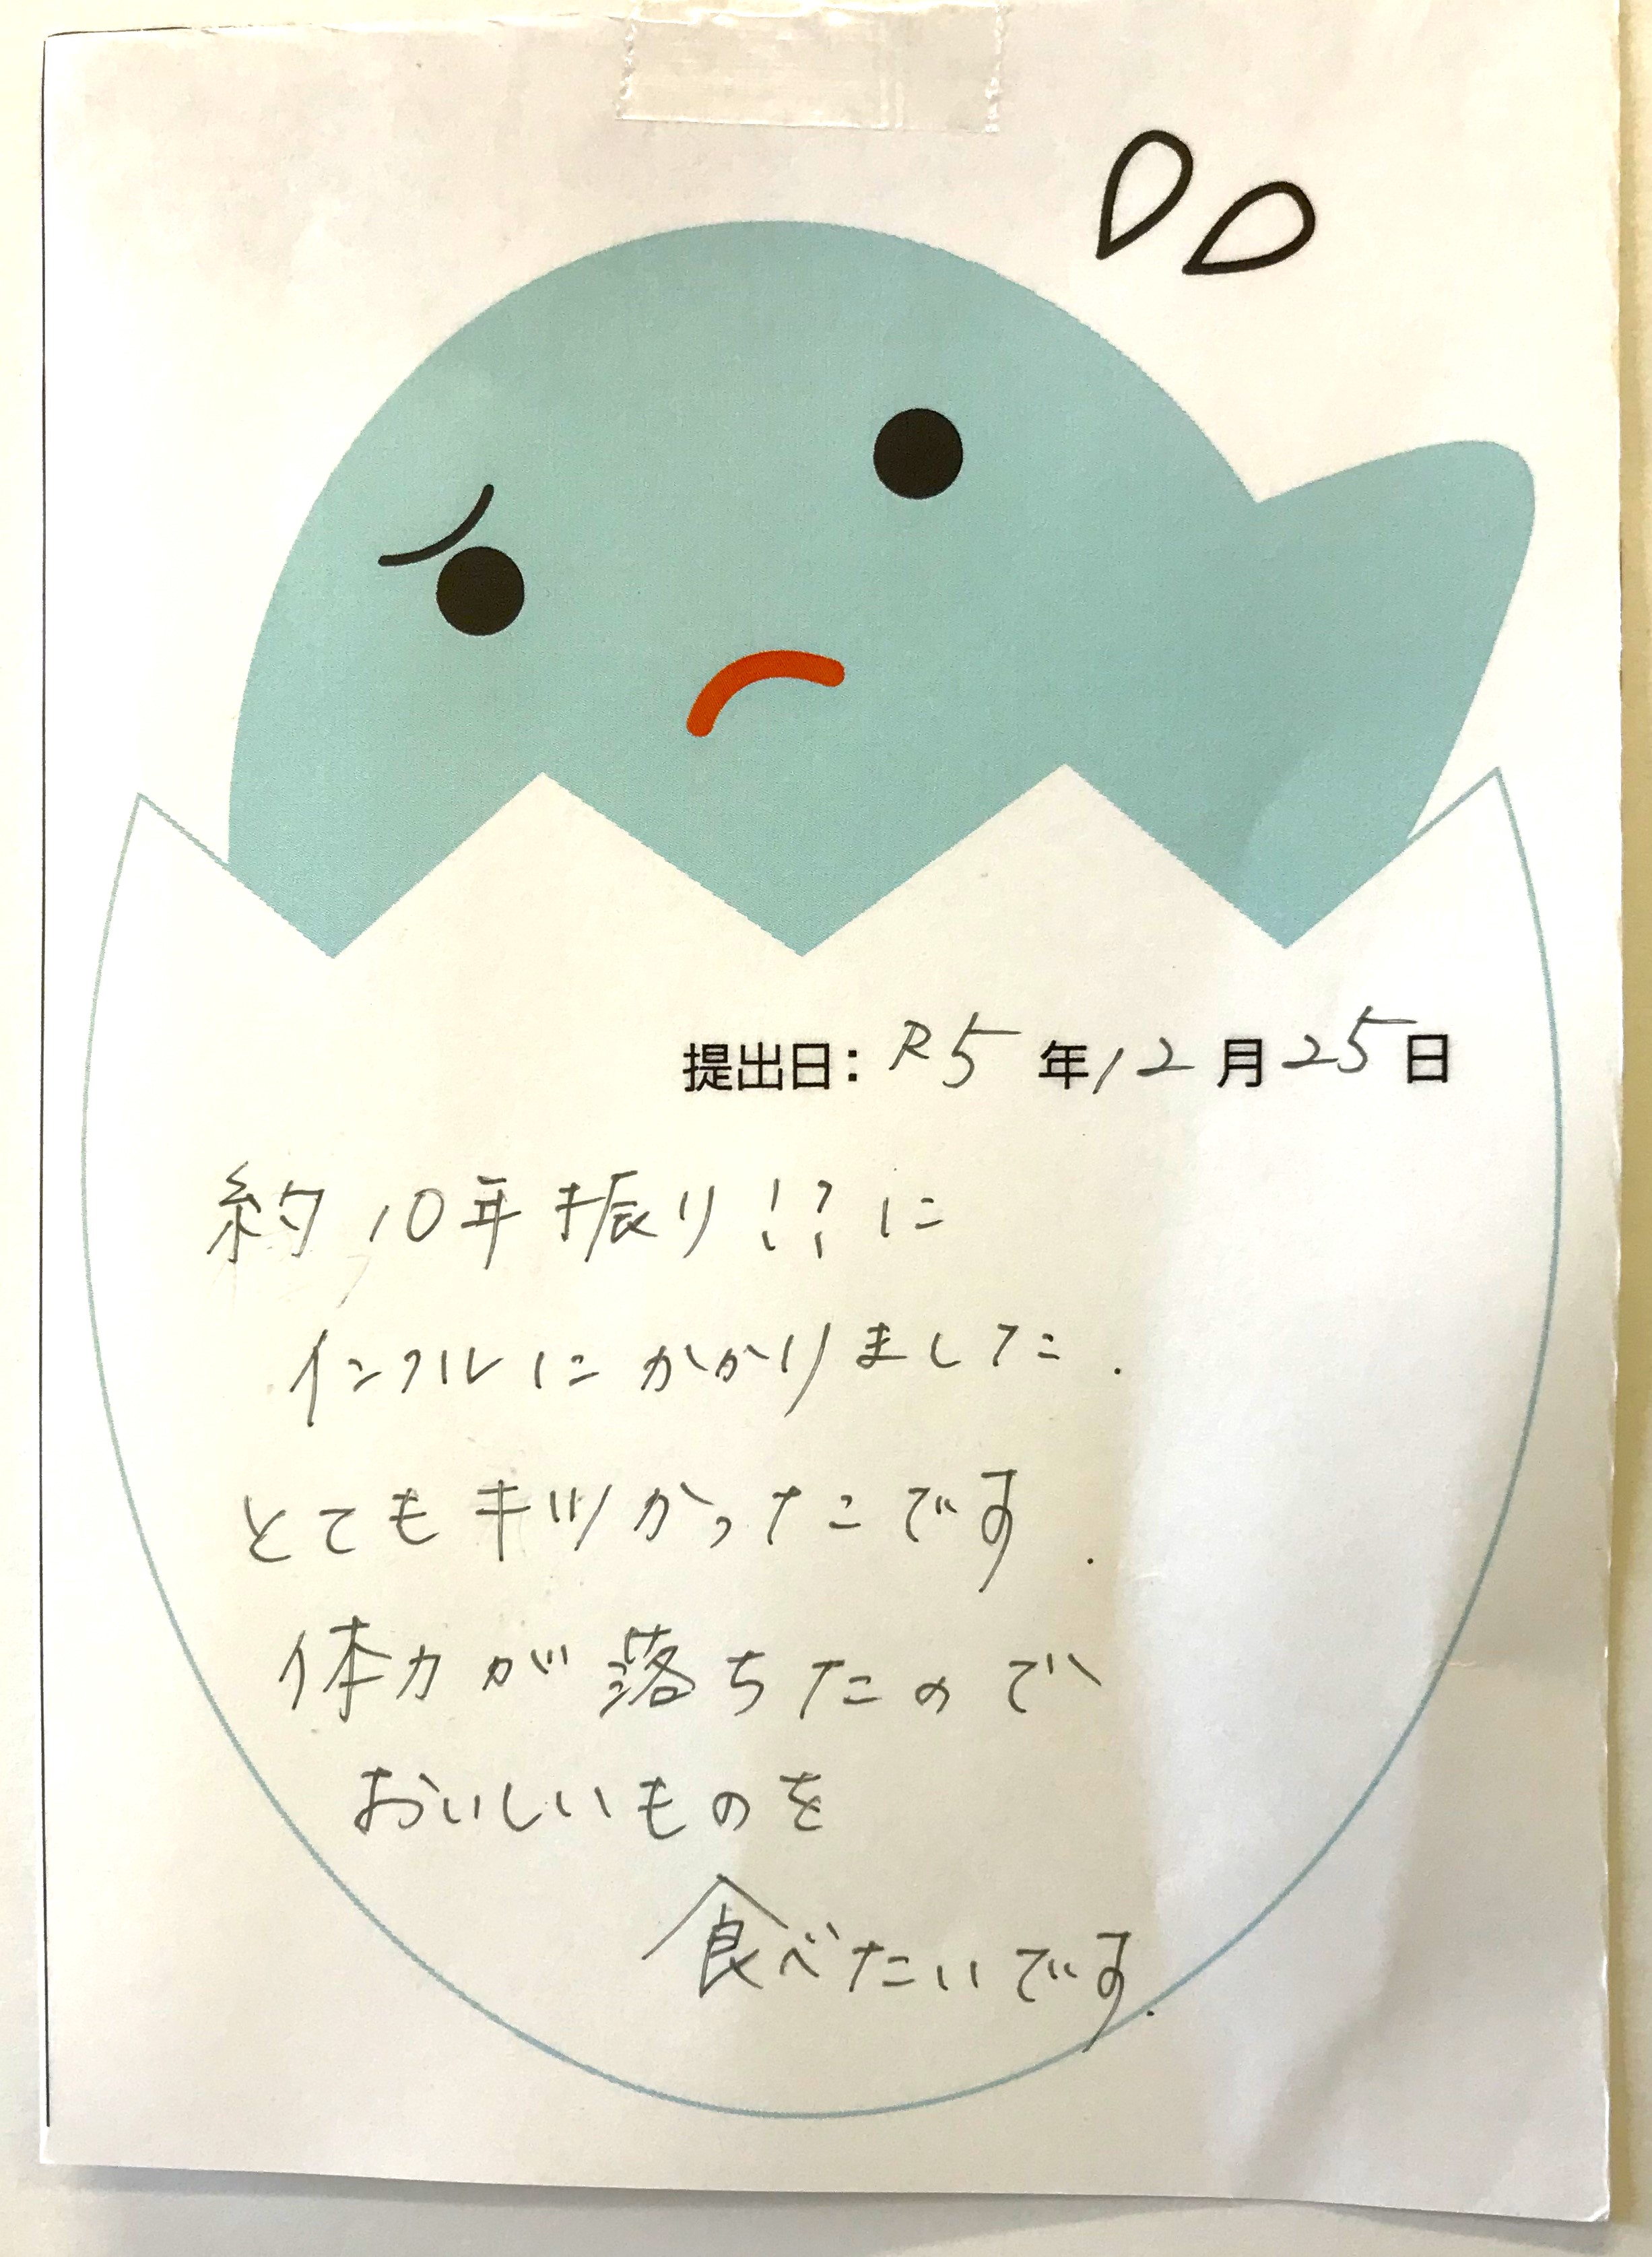 提出日：R5年12月25日
約10年振り!?に
インフルにかかりました．
とてもキツかったです．
体力が落ちたので
おいしいものを
食べたいです．